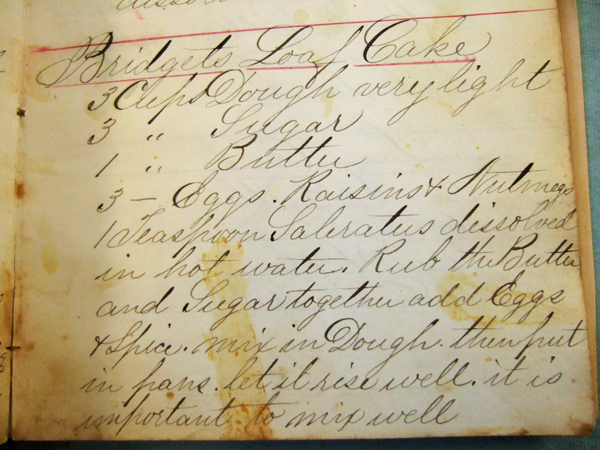 Bridgets Loaf Cake
3 Cups Dough very light
3 " Sugar
1 " Butter
3 - Eggs. Raisins & Nutmegs
1 Teaspoon Saleratus dissolved
in hot water. Rub the Butter
and Sugar together add Eggs
& Spice. mix in Dough. then put
in pans. let it rise well. it is
important to mix well